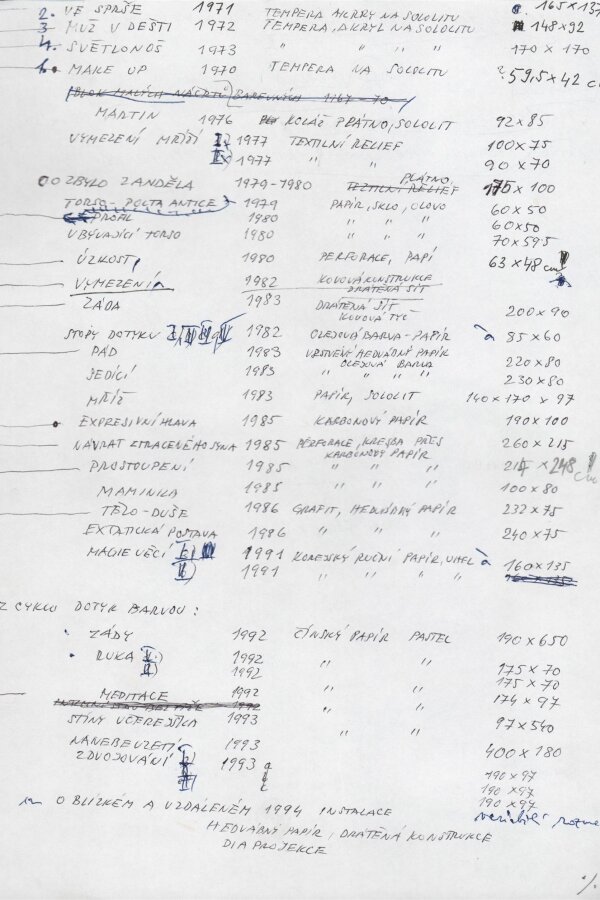 2. VE SPRŠE 1971 TEMPERA AKRYL NA SOLOLITU 165 x 137
3. MUŽ V DEŠTI 1972 TEMPERA, AKRYL NA SOLOLITU 148 x 92
4. SVĚTLONOŠ 1973 " " " " 170 x 170
1. MAKE UP 1970 TEMPERA NA SOLOLITU ? 59,5 x 42 c
BLOK MALÝCH NÁČRTŮ BAREVNÝCH 1967-70
MARTIN 1976 KOLÁŽ PLÁTNO, SOLOLIT 92 x 85
VYMEZENÍ MŘÍŽÍ I. 1977 TEXTILNÍ RELIEF 100 x 75
II. 1977 " " 90 x 70
CO ZBYLO Z ANDĚLA 1979-1980 PLÁTNO, TEXTILNÍ RELIEF 175 x 100
TORSO - POCTA ANTICE 1979 PAPÍR, SKLO, OLOVO 60 x 50
PROFIL 1980 " " " 60 x 50
UBÝVAJÍCÍ TORSO 1980 " " " 70 x 595
ÚZKOST 1980 PERFORACE, PAPÍ 63 x 48 cm
VYMEZENÍ 1982 KOVOVÁ KONSTRUKCE
DRÁTĚNÁ SÍŤ
ZÁDA 1983 DRÁTĚNÁ SÍŤ 200 x 90
KOVOVÁ TYČ
STOPY DOTYKU 1982 OLEJOVÁ BARVA - PAPÍR à 85 x 60
PÁD 1983 VRSTVENÝ HEDVÁBNÝ PAPÍR 220 x 80
OLEJOVÁ BARVA
SEDÍCÍ 1983 " " " " 230 x 80
MŘÍŽ 1983 PAPÍR, SOLOLIT 140 x 170 x 97
EXPRESIVNÍ HLAVA 1985 KARBONOVÝ PAPÍR 190 x 100
NÁVRAT ZTRACENÉHO SYNA 1985 PERFORACE, KRESBA PŘES 260 x 215
KARBONOVÝ PAPÍR
PROSTOUPENÍ 1985 " " " x 248 cm
MAMINKA 1985 " " " 100 x 80
TĚLO - DUŠE 1986 GRAFIT, HEDVÁBNÝ PAPÍR 232 x 75
EXTATICKÁ POSTAVA 1986 " " " 240 x 75
MAGIE VĚCÍ I. 1991 KOREJSKÝ RUČNÍ PAPÍR, UHEL à 160 x 135
II. 1991 " " " "
Z CYKLU DOTYK BARVOU:
ZÁDY 1992 ČÍNSKÝ PAPÍR PASTEL 190 x 650
RUKA I. 1992 " " 175 x 70
II. 1992 175 x 70
MEDITACE 1992 " " 174 x 97
STÍNY VČEREJŠKA 1993 " " 97 x 540
NANEBEVZETÍ 1993 400 x 180
ZDVOJOVÁNÍ I. 1993 190 x 97
II. 190 x 97
190 x 97
O BLÍZKÉM A VZDÁLENÉM 1994 INSTALACE variabilní rozmě
HEDVÁBNÝ PAPÍR, DRÁTĚNÁ KONSTRUKCE
DIA PROJEKCE